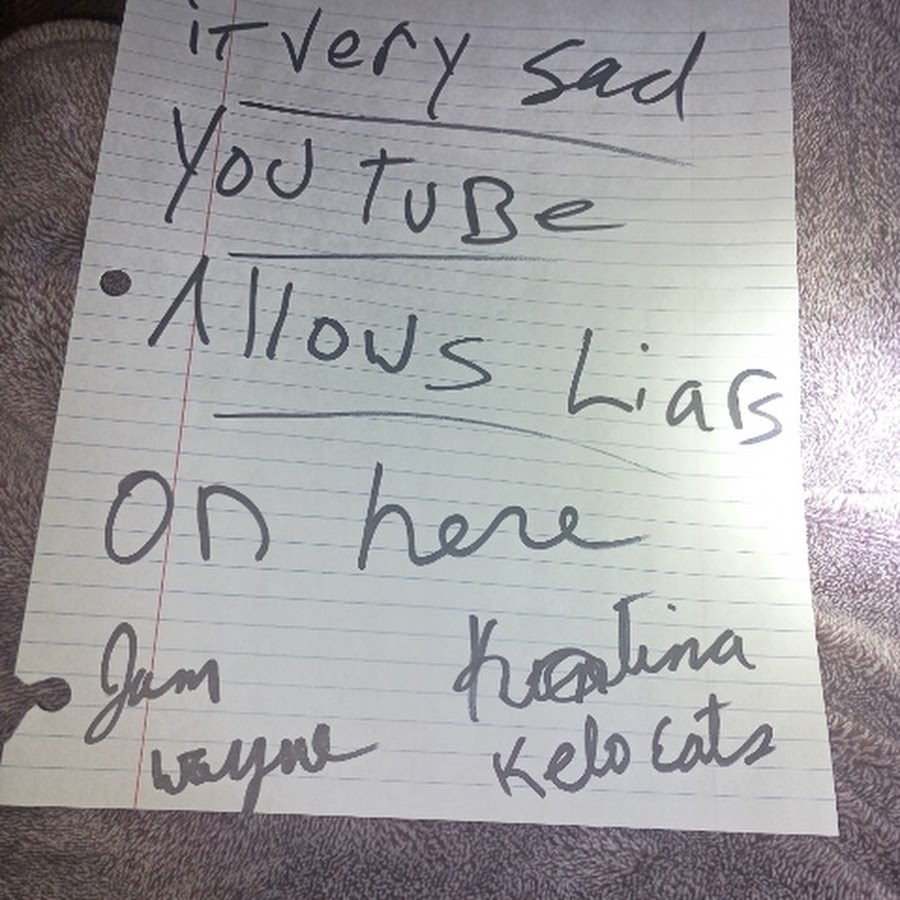 iT very sad
YOU TUBe
Allows Liars
On here
Jam
wayne
Kelo Cats